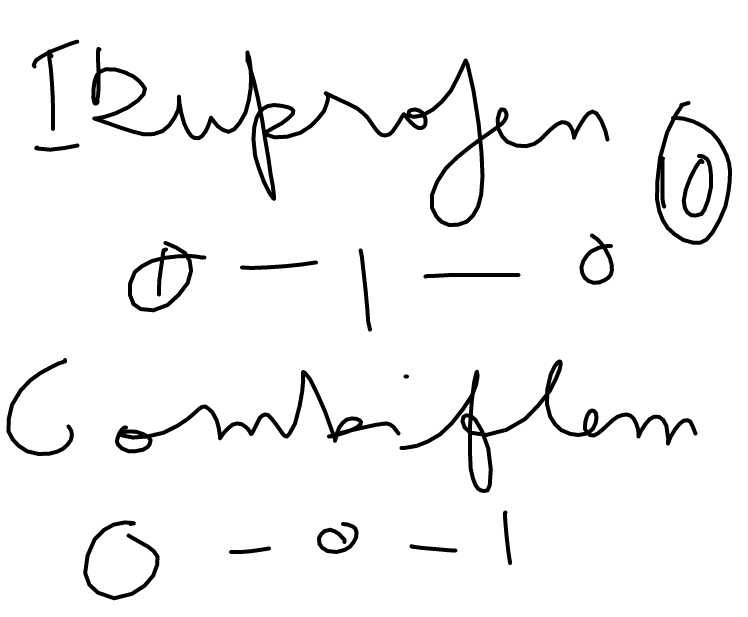 Ibuprofen ⑩
① - 1 - 0
Combiflem
0 - 0 - 1